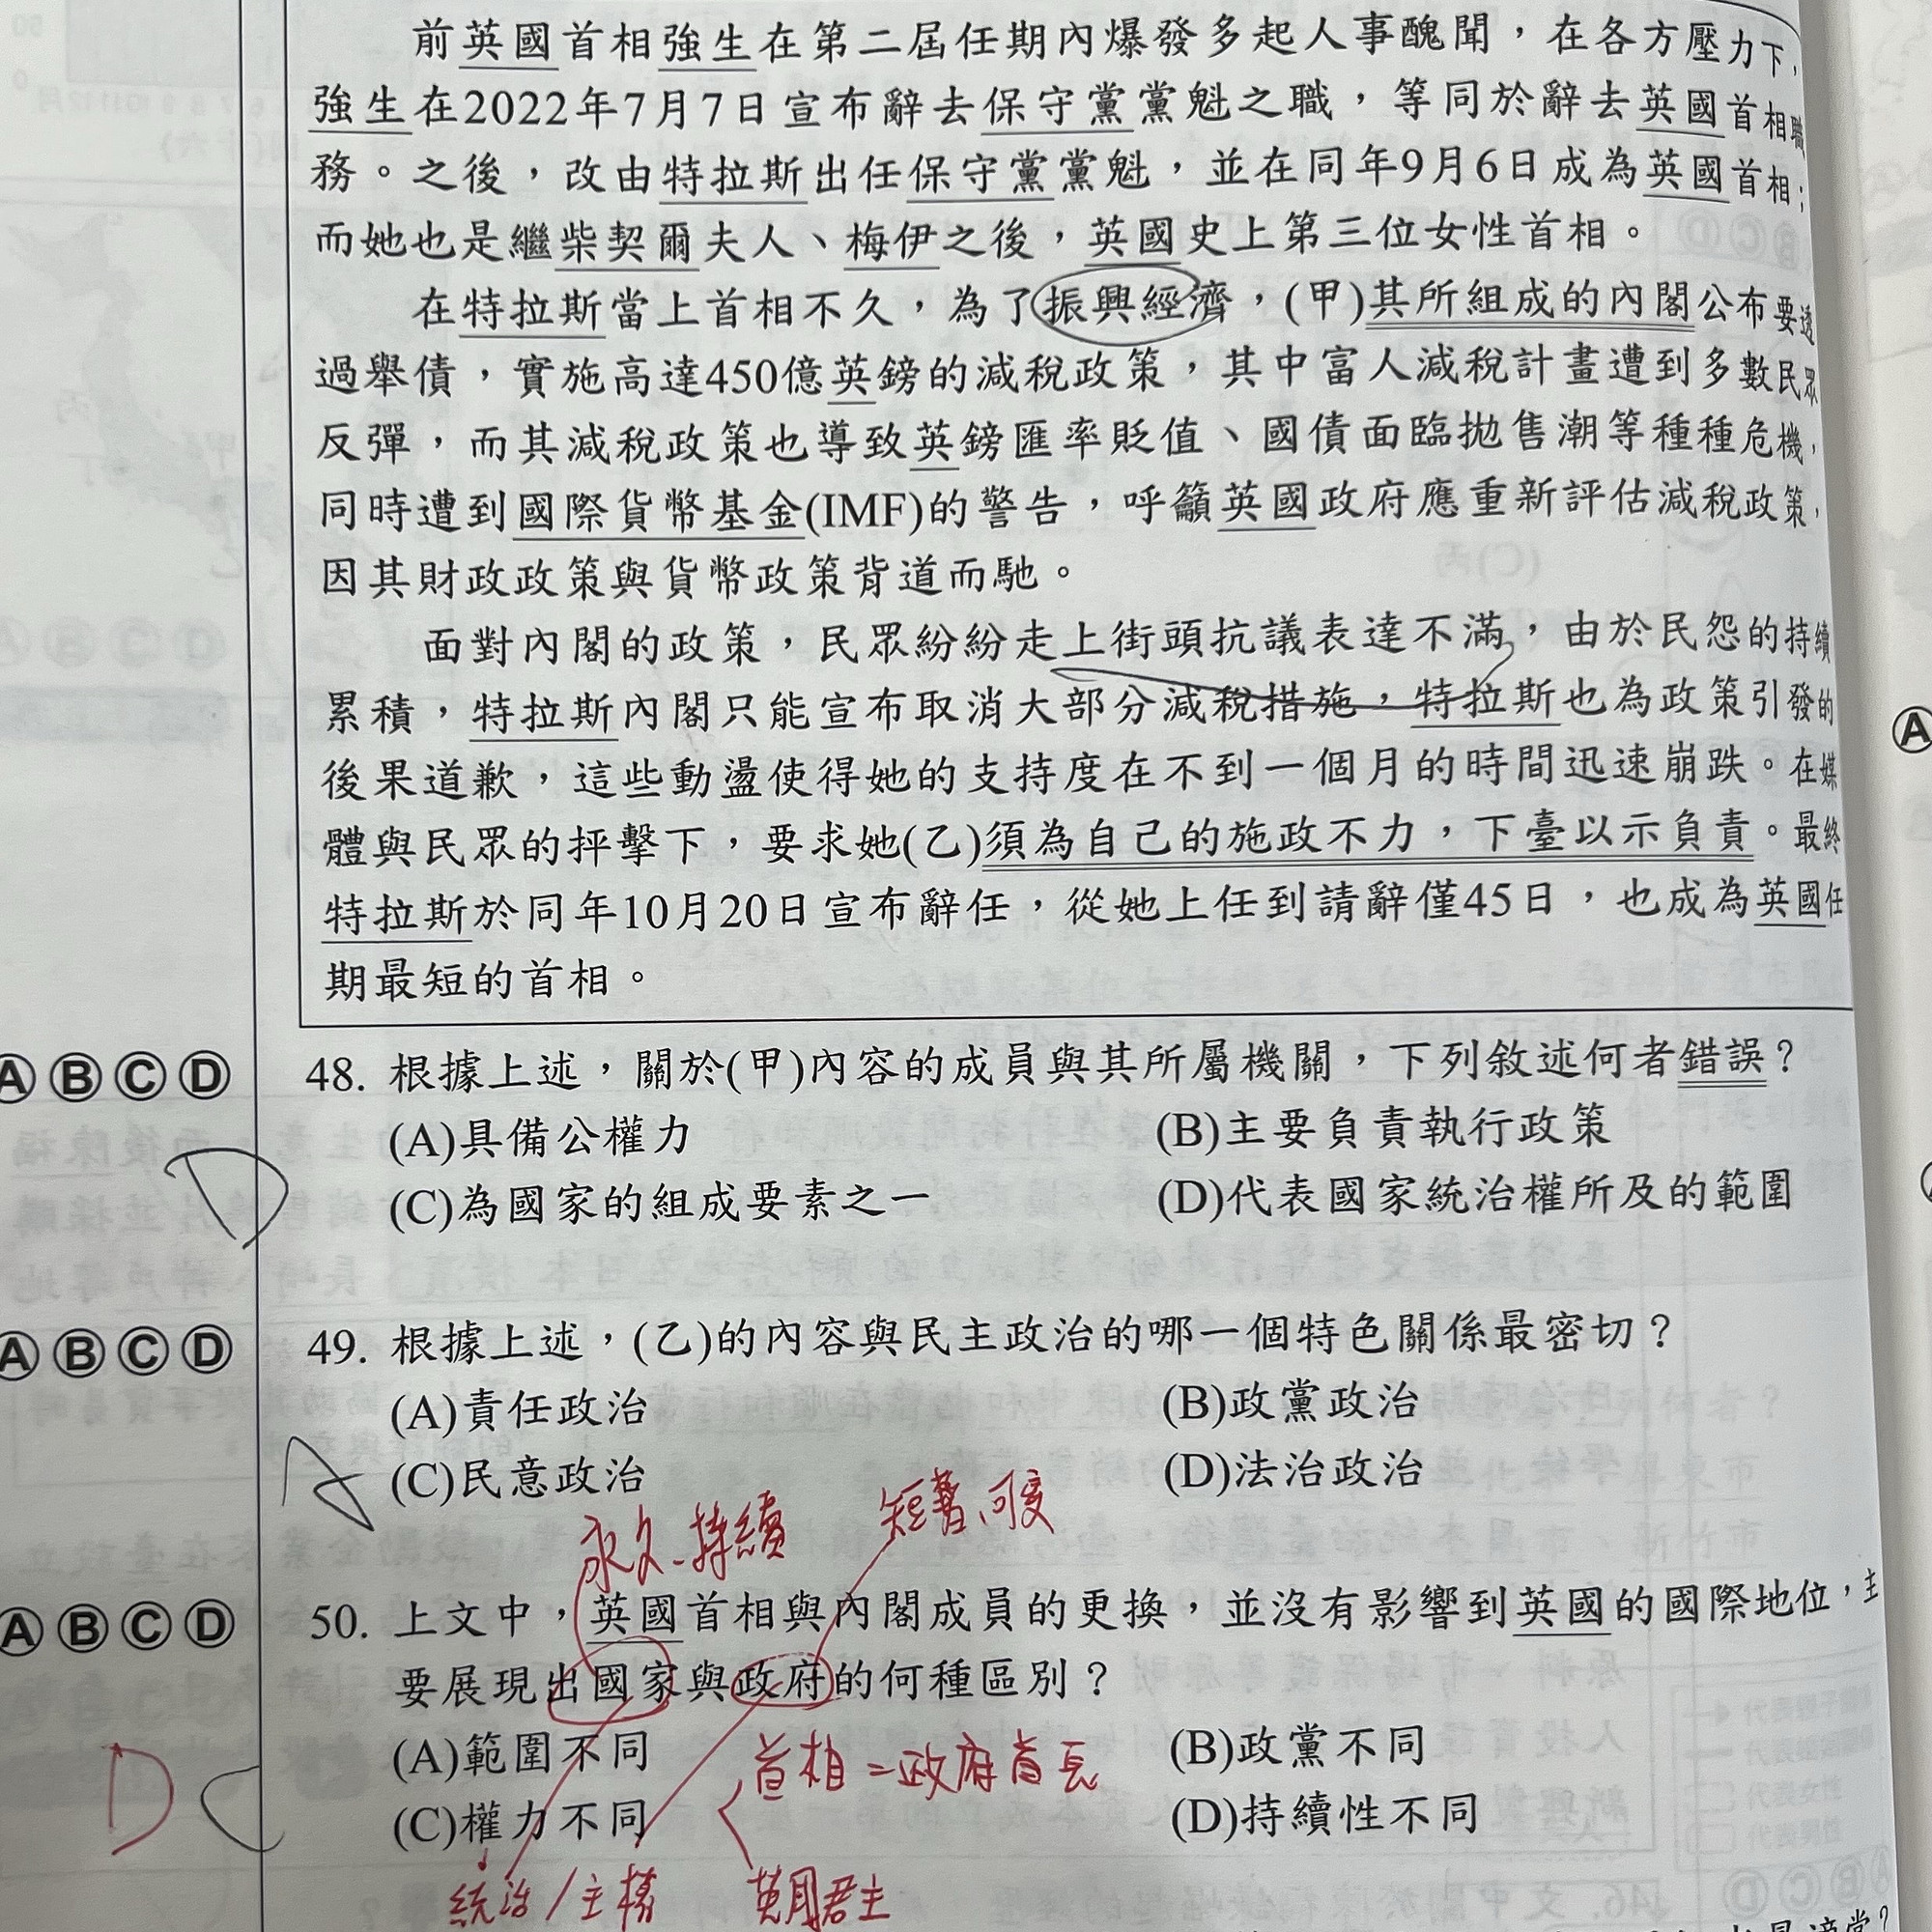 前英國首相強生在第二屆任期內爆發多起人事醜聞，在各方壓力下，
強生在2022年7月7日宣布辭去保守黨黨魁之職，等同於辭去英國首相職
務。之後，改由特拉斯出任保守黨黨魁，並在同年9月6日成為英國首相；
而她也是繼柴契爾夫人、梅伊之後，英國史上第三位女性首相。
在特拉斯當上首相不久，為了振興經濟，(甲)其所組成的內閣公布要透
過舉債，實施高達450億英鎊的減稅政策，其中富人減稅計畫遭到多數民眾
反彈，而其減稅政策也導致英鎊匯率貶值、國債面臨拋售潮等種種危機，
同時遭到國際貨幣基金(IMF)的警告，呼籲英國政府應重新評估減稅政策，
因其財政政策與貨幣政策背道而馳。
面對內閣的政策，民眾紛紛走上街頭抗議表達不滿，由於民怨的持續
累積，特拉斯內閣只能宣布取消大部分減稅措施，特拉斯也為政策引發的
後果道歉，這些動盪使得她的支持度在不到一個月的時間迅速崩跌。在媒
體與民眾的抨擊下，要求她(乙)須為自己的施政不力，下臺以示負責。最終
特拉斯於同年10月20日宣布辭任，從她上任到請辭僅45日，也成為英國任
期最短的首相。
ⒶⒷⒸⒹ 48. 根據上述，關於(甲)內容的成員與其所屬機關，下列敘述何者錯誤？
(A)具備公權力 (B)主要負責執行政策
D (C)為國家的組成要素之一 (D)代表國家統治權所及的範圍
ⒶⒷⒸⒹ 49. 根據上述，(乙)的內容與民主政治的哪一個特色關係最密切？
(A)責任政治 (B)政黨政治
A (C)民意政治 (D)法治政治
永久、持續 短暫、可變
ⒶⒷⒸⒹ 50. 上文中，英國首相與內閣成員的更換，並沒有影響到英國的國際地位，主
要展現出國家與政府的何種區別？
(A)範圍不同 (B)政黨不同
首相＝政府首長
D C (C)權力不同 (D)持續性不同
統治/主權 英國君主